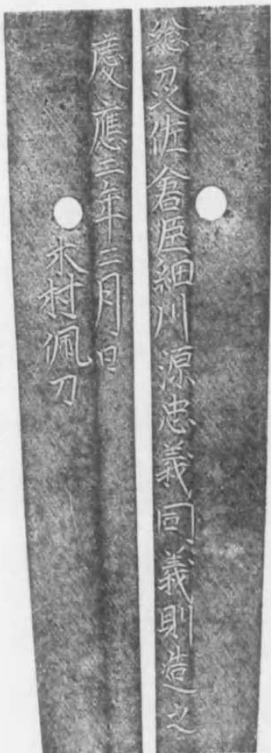 總刕佐倉臣細川源忠義同義則造之
慶應二年二月日
木村佩刀